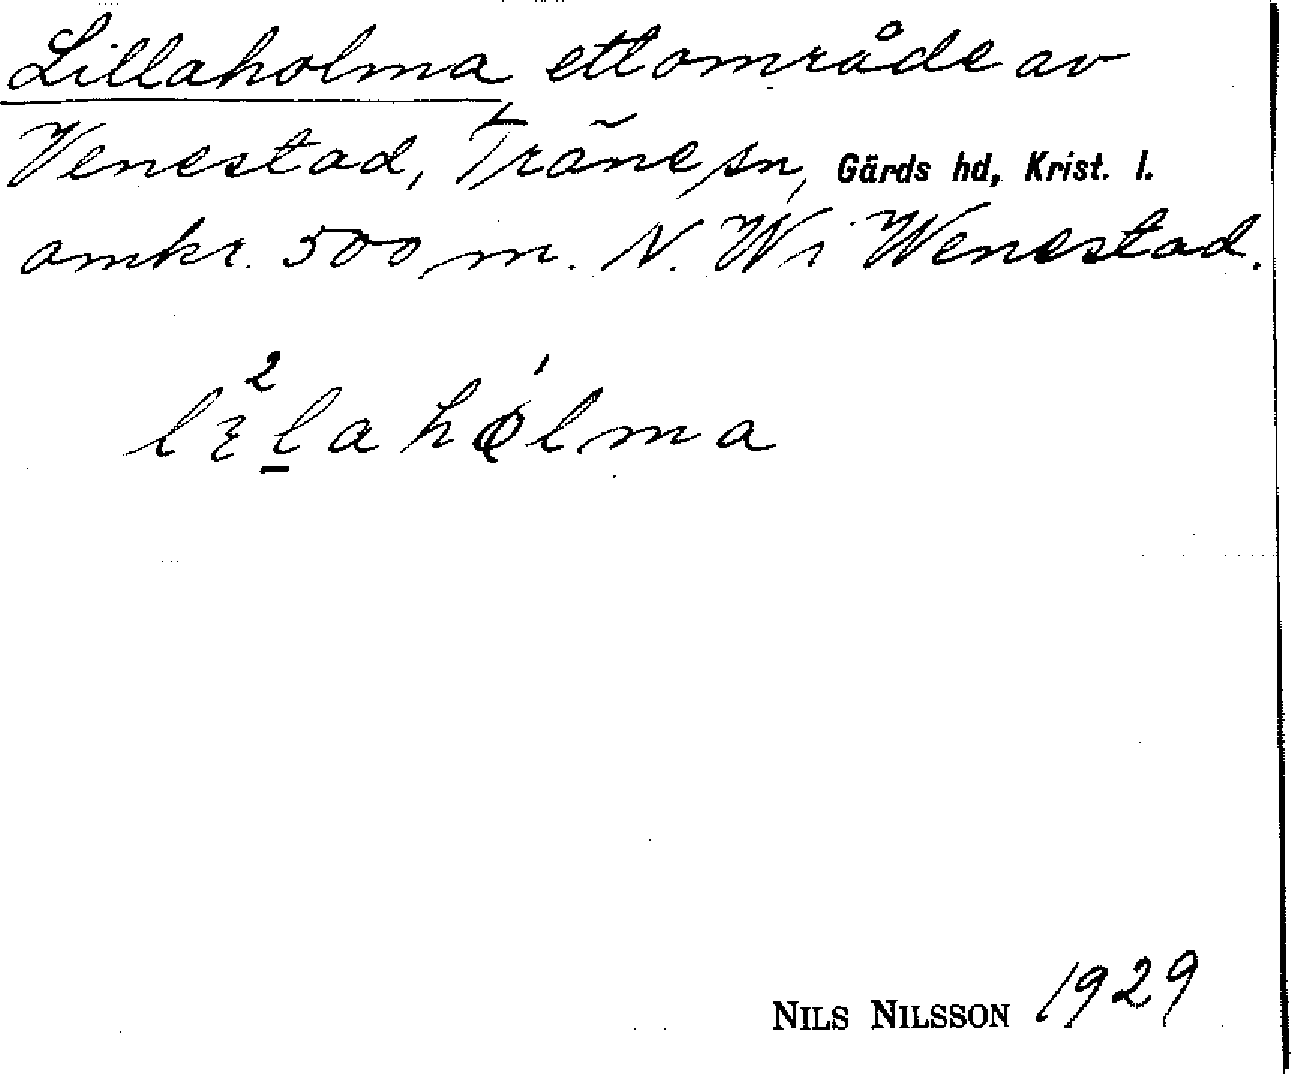 Lillaholma ett område av
Venestad, Träne sn, Gärds hd, Krist. l.
omkr. 500 m. N. W. i Wenestad.
NILS NILSSON 1929